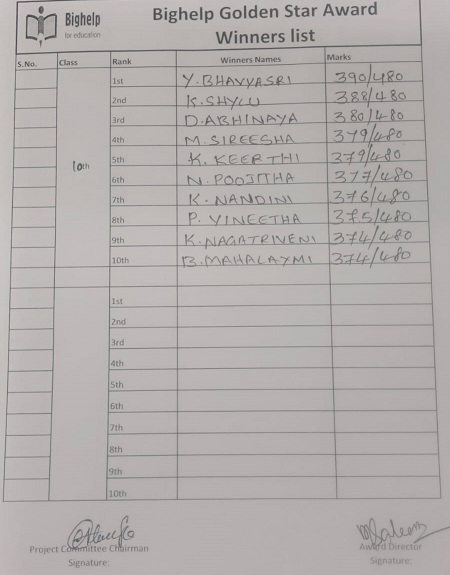 Bighelp
for education
Bighelp Golden Star Award
Winners list
S.No. Class Rank Winners Names Marks
1st Y. BHAVYASRI 390/480
2nd K. SHYLU 388/480
3rd D. ABHINAYA 380/480
4th M. SIREESHA 379/480
10th 5th K. KEERTHI 379/480
6th N. POOJITHA 377/480
7th K. NANDINI 376/480
8th P. VINEETHA 375/480
9th K. NAGATRIVENI 374/480
10th B. MAHALAXMI 374/480
1st
2nd
3rd
4th
5th
6th
7th
8th
9th
10th
Project Committee Chairman Award Director
Signature: Signature: